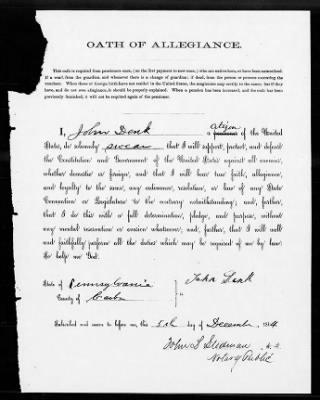 OATH OF ALLEGIANCE.
This oath is required from pensioners once, (on the first payment to new ones,) who are native-born, or have been naturalized;
if a ward, from the guardian, and whenever there is a change of guardian; if dead, from the person or persons receiving the
vouchers. When those of foreign birth have not resided in the United States, the magistrate may certify to the same; but if they
have, and do not own allegiance, it should be properly explained. When a pension has been increased, and the oath has been
previously furnished, it will not be required again of the pensioner.
citizen
I, John Denk a of the United
States, do solemnly swear that I will support, protect, and defend
the Constitution and Government of the United States against all enemies,
whether domestic or foreign, and that I will bear true faith, allegiance,
and loyalty to the same, any ordinance, resolution, or law of any State
Convention or Legislature to the contrary notwithstanding; and, further,
that I do this with a full determination, pledge, and purpose, without
any mental reservation or evasion whatsoever; and, further, that I will well
and faithfully perform all the duties which may be required of me by law:
So help me God.
State of Pennsylvania
John Denk
County of
Subscribed and sworn to before me, this 5th day of December,
John Stedman
Notary Public